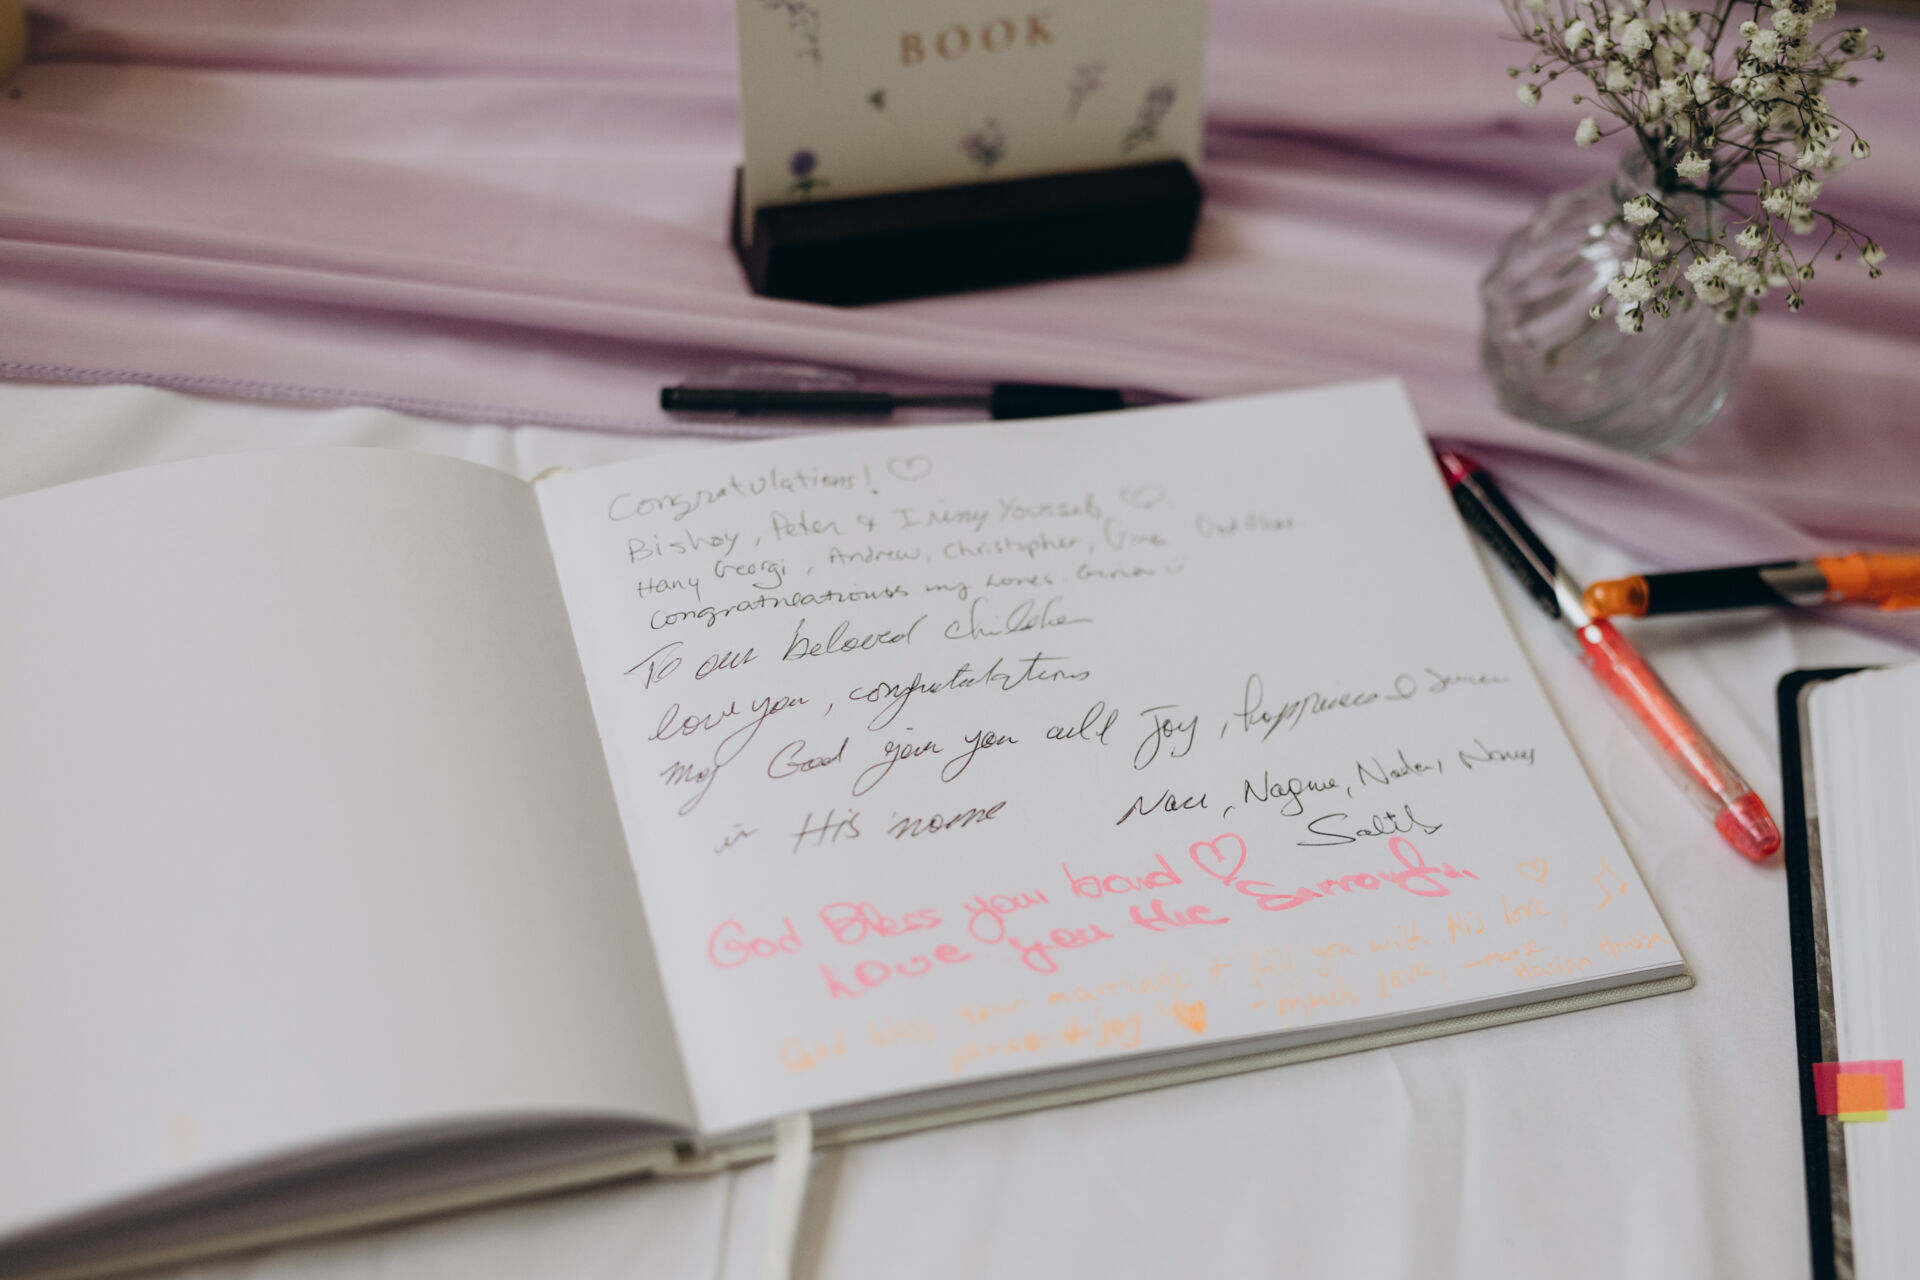 BOOK
Congratulations! ♡
Bishoy, Peter & Iriny Youssab ♡
Hany Georgi, Andrew, Christopher,
my
To our beloved children
love you, congratulations
may God give you all Joy, happiness
in His name
Nagwa, Nader,
God Bless your bond ♡
Love you the
God bless your marriage + fill you with His love,
peace + joy! - much love, - Mark